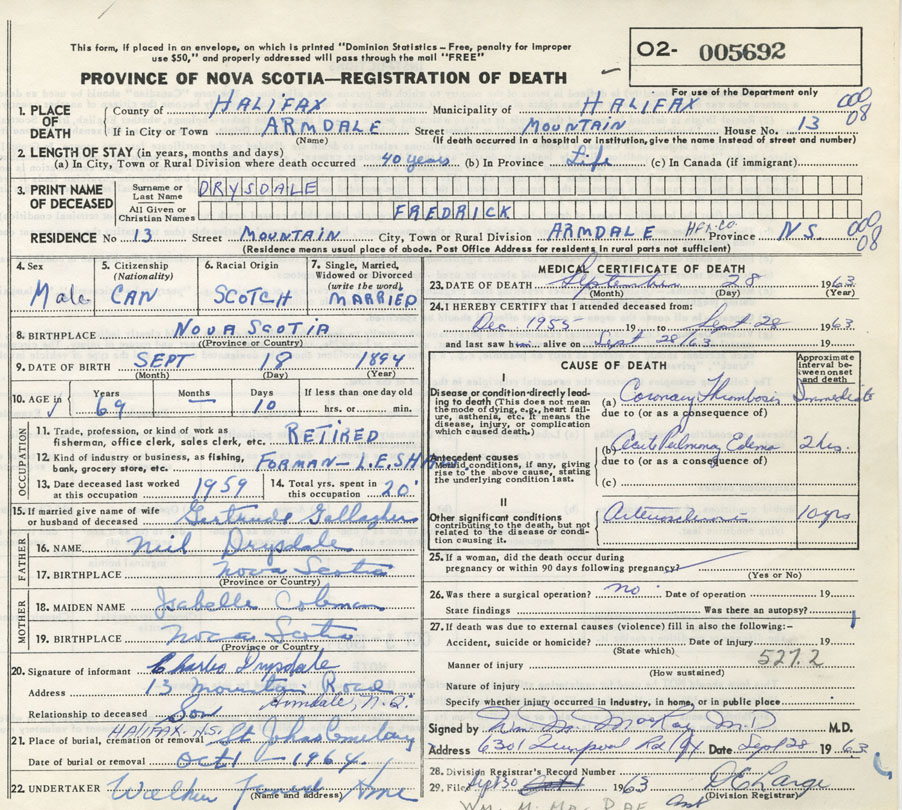 This form, if placed in an envelope, on which is printed "Dominion Statistics – Free, penalty for improper
use $50," and properly addressed will pass through the mail "FREE"
O2- 005692
PROVINCE OF NOVA SCOTIA—REGISTRATION OF DEATH
For use of the Department only
1. PLACE OF DEATH
County of HALIFAX Municipality of HALIFAX
If in City or Town ARMDALE Street MOUNTAIN House No. 13
(Name) (If death occurred in a hospital or institution, give the name instead of street and number)
000
08
2. LENGTH OF STAY (in years, months and days)
(a) In City, Town or Rural Division where death occurred 40 years (b) In Province Life (c) In Canada (if immigrant)
3. PRINT NAME OF DECEASED
Surname or Last Name DRYSDALE
All Given or Christian Names FREDRICK
RESIDENCE No 13 Street MOUNTAIN City, Town or Rural Division ARMDALE HFX-CO. Province N.S.
(Residence means usual place of abode. Post Office Address for residents in rural parts not sufficient)
000
08
4. Sex Male
5. Citizenship (Nationality) CAN
6. Racial Origin SCOTCH
7. Single, Married, Widowed or Divorced (write the word) MARRIED
8. BIRTHPLACE NOVA SCOTIA
(Province or Country)
9. DATE OF BIRTH SEPT 18 1894
(Month) (Day) (Year)
10. AGE in Years 69 Months — Days 10 If less than one day old
hrs. or min.
OCCUPATION
11. Trade, profession, or kind of work as
fisherman, office clerk, sales clerk, etc. RETIRED
12. Kind of industry or business, as fishing,
bank, grocery store, etc. FORMAN—L.E.SHAW
13. Date deceased last worked
at this occupation 1959
14. Total yrs. spent in
this occupation 20
15. If married give name of wife
or husband of deceased Gertrude Gallagher
FATHER
16. NAME Neil Drysdale
17. BIRTHPLACE Nova Scotia
(Province or Country)
MOTHER
18. MAIDEN NAME Isabelle Coleman
19. BIRTHPLACE Nova Scotia
(Province or Country)
20. Signature of informant Charles Drysdale
Address 13 Mountain Road
Armdale, N.S.
Relationship to deceased Son
HALIFAX, N.S.
21. Place of burial, cremation or removal St Johns Cemetery
Date of burial or removal Oct 1 – 196
22. UNDERTAKER Walker Funeral Home
(Name and address)
MEDICAL CERTIFICATE OF DEATH
23. DATE OF DEATH September 28 1963
(Month) (Day) (Year)
24. I HEREBY CERTIFY that I attended deceased from:
Dec. 1955 19 to Sept 28 1963
and last saw him alive on Sept 28/63 19
CAUSE OF DEATH
Approximate interval between onset and death
I
Disease or condition directly leading
to death (This does not mean
the mode of dying, e.g., heart failure,
asthenia, etc. It means the
disease, injury, or complication
which caused death.)
(a) Coronary Thrombosis Immediate
due to (or as a consequence of)
Antecedent causes
Morbid conditions, if any, giving
rise to the above cause, stating
the underlying condition last.
(b) Acute Pulmonary Edema 2 hrs.
due to (or as a consequence of)
(c)
II
Other significant conditions
contributing to the death, but not
related to the disease or condition
causing it.
Arteriosclerosis 10 yrs
25. If a woman, did the death occur during
pregnancy or within 90 days following pregnancy?
(Yes or No)
26. Was there a surgical operation? no Date of operation 19
State findings Was there an autopsy?
27. If death was due to external causes (violence) fill in also the following:—
Accident, suicide or homicide? Date of injury 19
(State which)
527.2
Manner of injury
(How sustained)
Nature of injury
Specify whether injury occurred in industry, in home, or in public place
Signed by Wm. M. MacRae M.D. M.D.
Address 6301 Liverpool Date Sept 28 1963
28. Division Registrar's Record Number
29. Filed Sept 30 1963
(Division Registrar)
WM. M. MAC RAE